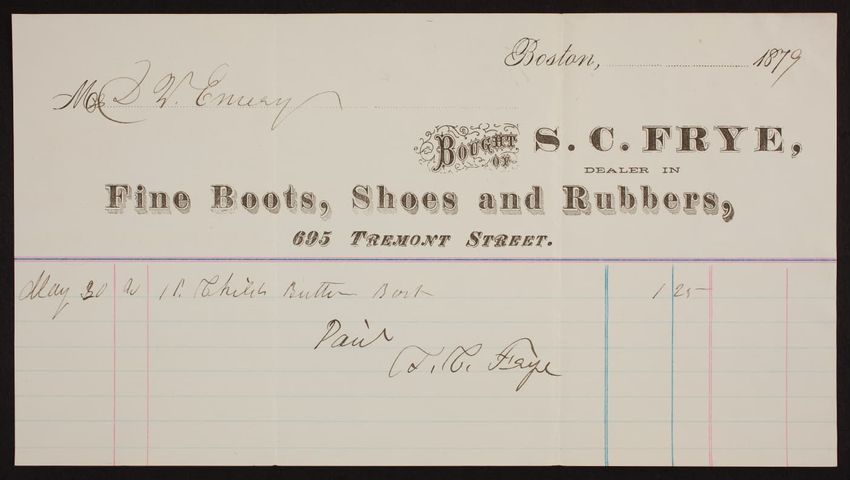 Boston, 1879
Mrs D W. Emery
BOUGHT OF S. C. FRYE,
DEALER IN
Fine Boots, Shoes and Rubbers,
695 TREMONT STREET.
May 30 To 1 P. Childs Button Boot 1 25
Paid
S. C. Frye